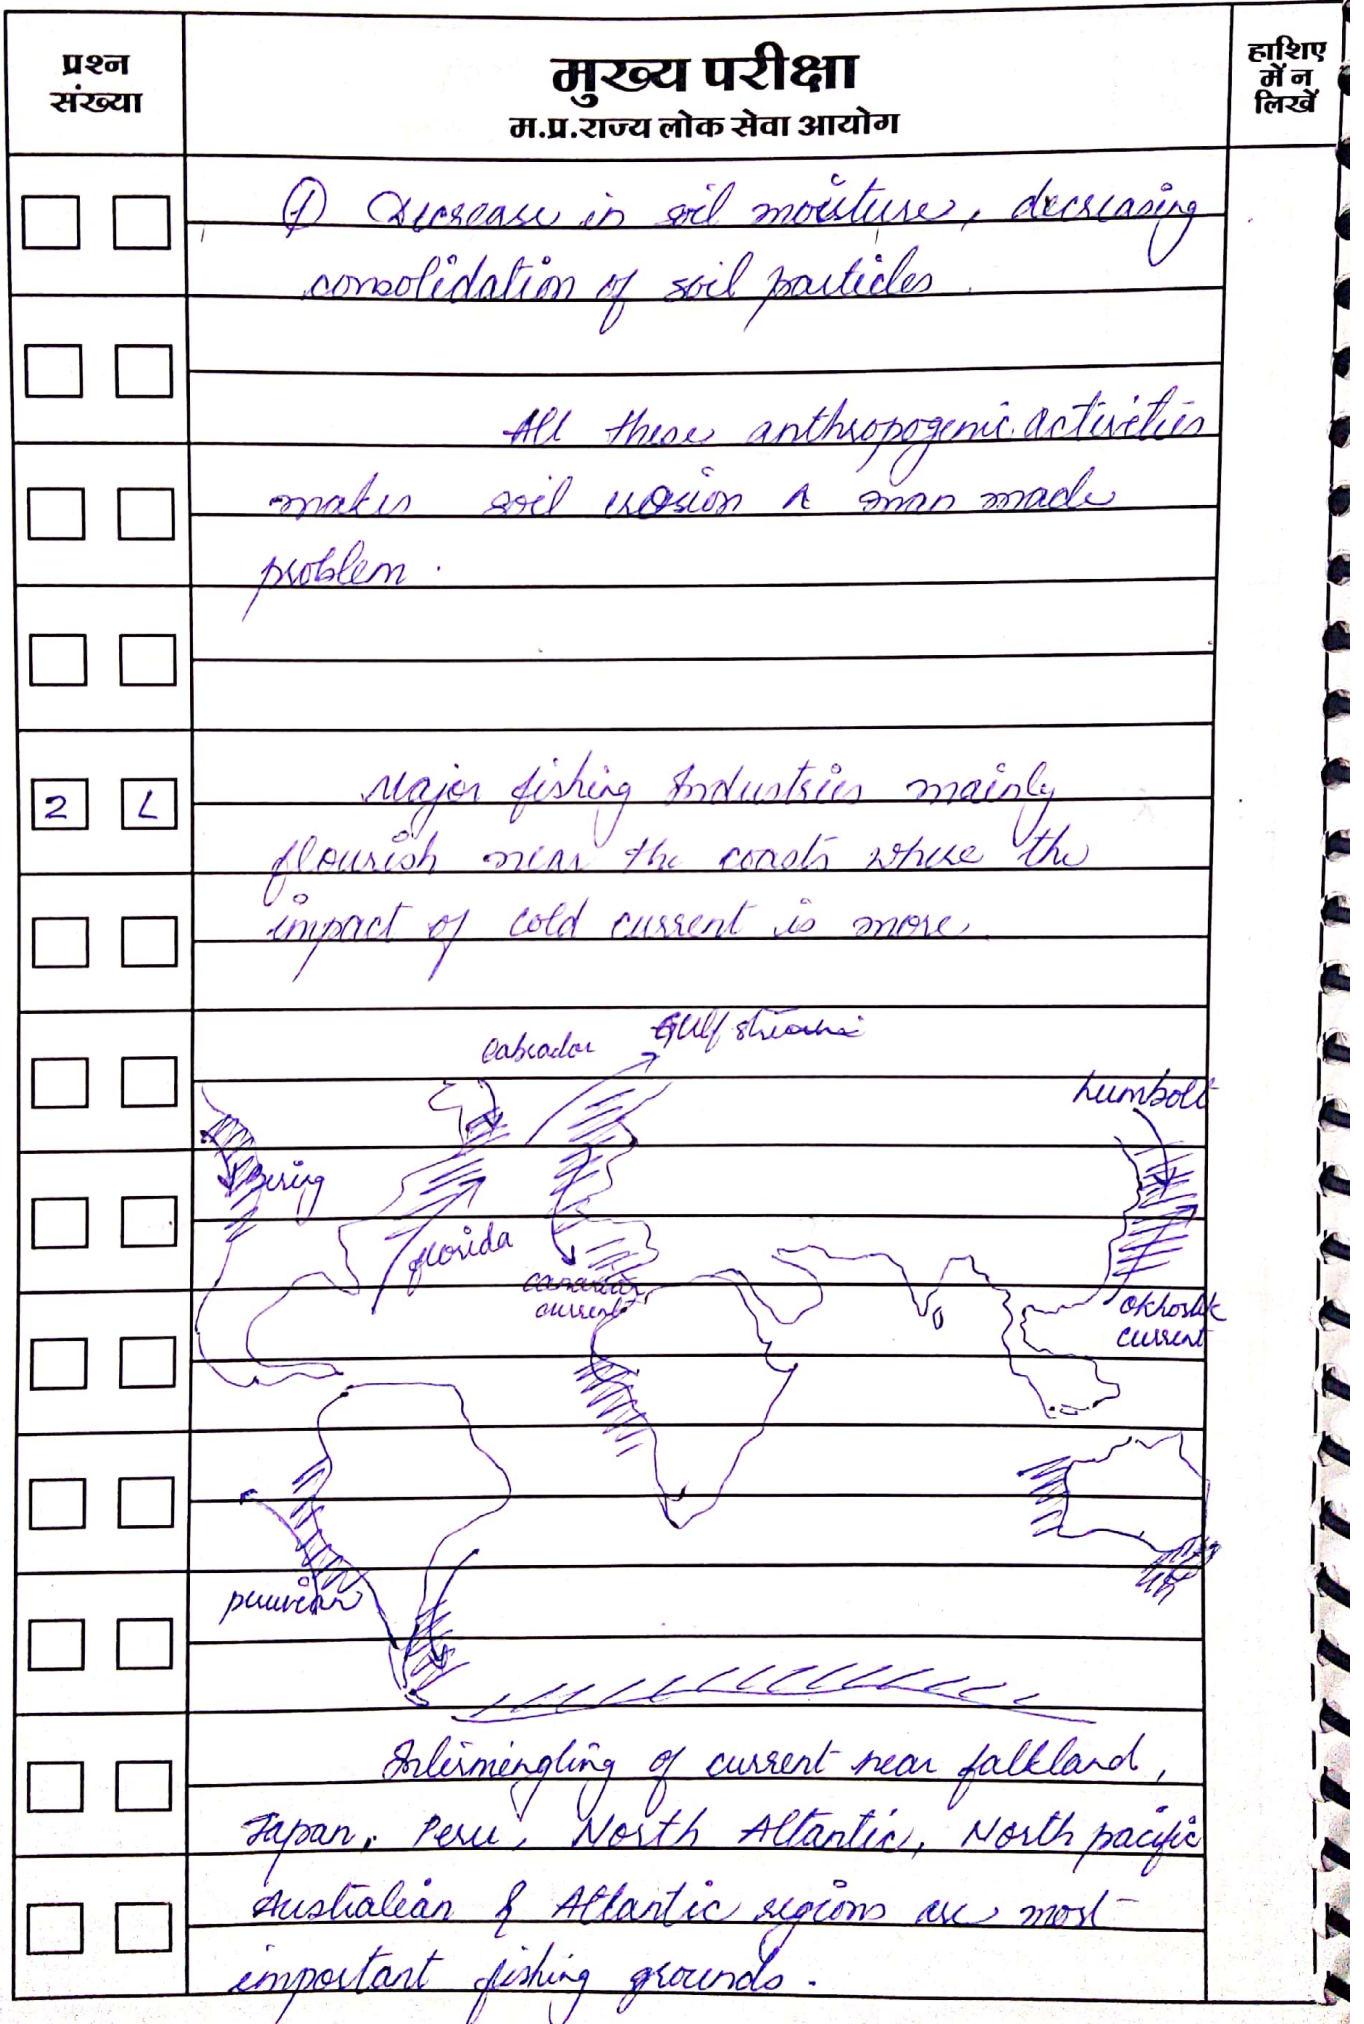 प्रश्न
संख्या
मुख्य परीक्षा
म.प्र.राज्य लोक सेवा आयोग
हाशिए
में न
लिखें
① Decrease in soil moisture, decreasing
consolidation of soil particles.
All these anthropogenic activities
makes soil erosion a man made
problem.
2 L
Major fishing Industries mainly
flourish near the coasts where the
impact of cold current is more.
Labrador
Gulf stream
humbolt
Bering
florida
canarian
current
okhostk
current
peruvian
Intermingling of current near falkland,
Japan, Peru, North Altantic, North pacific
Australian & Altantic regions are most
important fishing grounds.